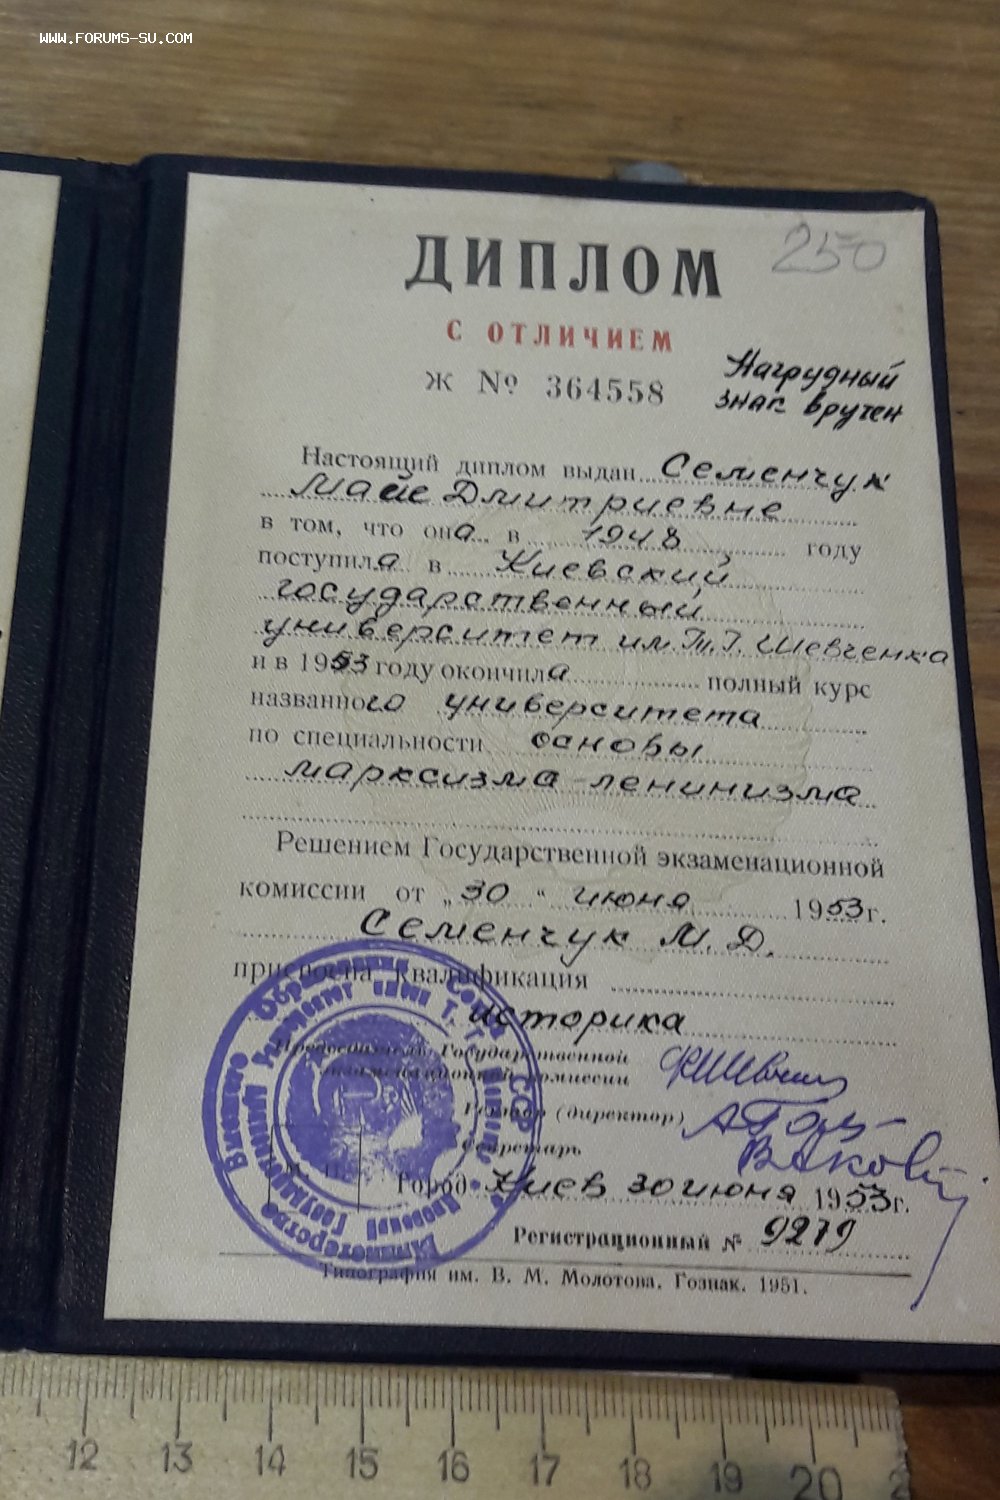 WWW.FORUMS-SU.COM
250
ДИПЛОМ
С ОТЛИЧИЕМ
Ж № 364558
Нагрудный
знак вручен
Настоящий диплом выдан Семенчук
Майе Дмитриевне
в том, что она в 1948 году
поступила в Киевский
государственный
университет им. Т. Г. Шевченка
и в 1953 году окончила полный курс
названного университета
по специальности основы
марксизма-ленинизма
Решением Государственной экзаменационной
комиссии от „30" июня 1953 г.
Семенчук М. Д.
присвоена квалификация
историка
Председатель Государственной
экзаменационной комиссии
Ректор (директор)
Секретарь
Город Киев 30 июня 1953 г.
Регистрационный № 9279
Министерство Высшего Образования Союза ССР
Типография им. В. М. Молотова. Гознак. 1951.
12 13 14 15 16 17 18 19 20